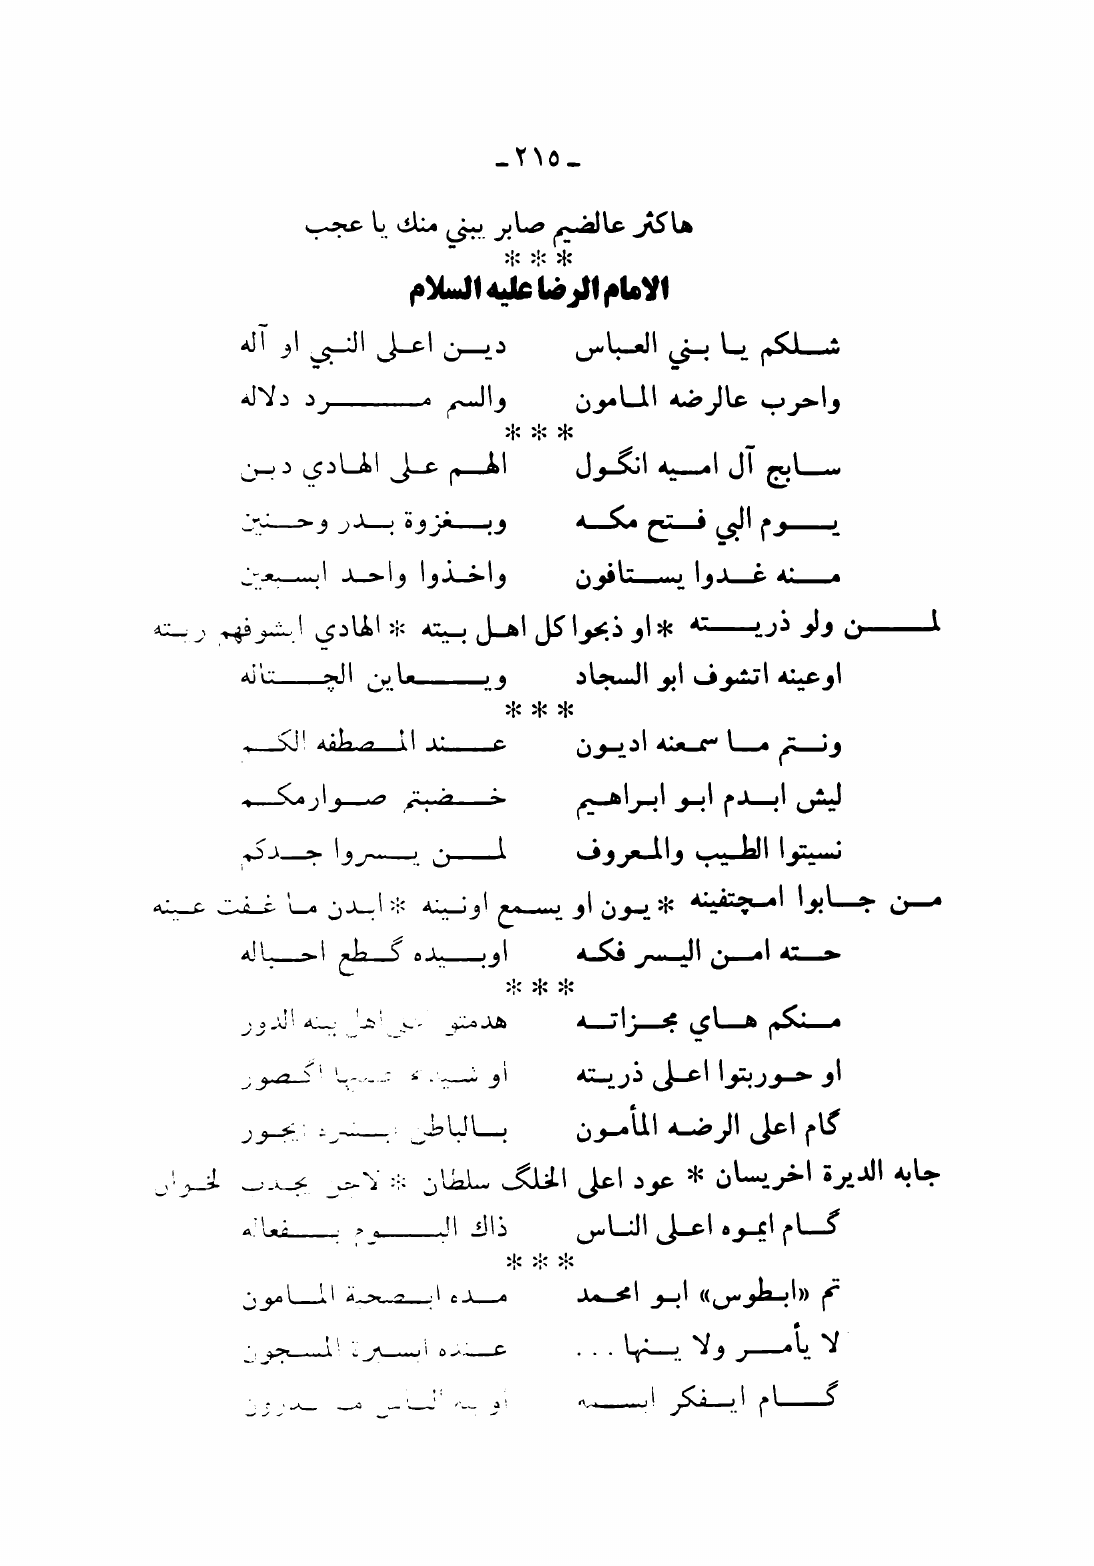 - ٢١٥ -
هاكثر عالضيم صابر يبني منك يا عجب
* * *
الامام الرضا عليه السلام
شلكم يا بني العباس دين اعلى النبي او آله
واحرب عالرضه المامون والسم مرد دلاله
* * *
سابج آل اميه انگول الهم على الهادي دين
يوم البي فتح مكه وبغزوة بدر وحنين
منه غدوا يستافون واخذوا واحد ابسبعين
لمن ولو ذريته * او ذبحوا كل اهل بيته * الهادي ابشوفهم ريته
اوعينه اتشوف ابو السجاد ويعاين الچتاله
* * *
ونتم ما سمعنه اديون عند المصطفه الكم
ليش ابدم ابو ابراهيم خضبتم صوارمكم
نسيتوا الطيب والمعروف لمن يسروا جدكم
من جابوا امچتفينه * يون او يسمع اونينه * ابدن ما غفت عينه
حته امن اليسر فكه اوبيده گطع احباله
* * *
منكم هاي مجزاته هدمتو اهل بيته الدور
او حوربتوا اعلى ذريته او اگصور
گام اعلى الرضه المأمون بالباطن ايجور
جابه الديرة اخريسان * عود اعلى الخلگ سلطان * لاجن يجذب
گام ايموه اعلى الناس ذاك اليوم بفعاله
* * *
تم «ابطوس» ابو امحمد مده ابصحبة المامون
لا يأمر ولا ينها ... عنده ابسيرة المسجون
گام ايفكر الناس